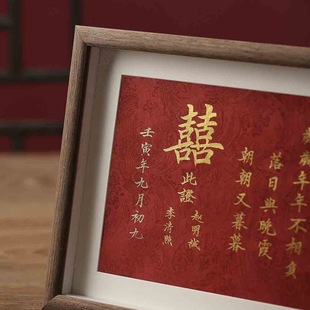 年年不相負
落日與晚霞
朝朝又暮暮
囍
此證
赵明誠
李清照
壬寅年九月初九